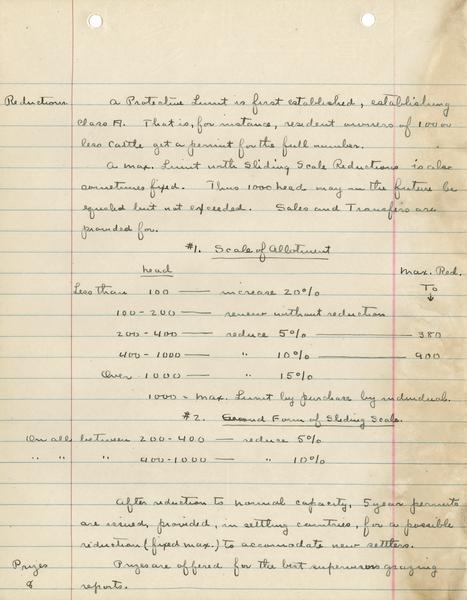 Reductions a Protective Limit is first established, establishing
Class A. That is, for instance, resident owners of 100 or
less cattle get a permit for the full number.
A max. Limit with Sliding Scale Reductions is also
sometimes fixed. Thus 1000 head may in the future be
equaled but not exceeded. Sales and Transfers are
provided for.
#1. Scale of Allotment
head max. Red.
Less than 100 — increase 20% To
↓
100-200 — renew without reduction
200-400 — reduce 5% — 380
400-1000 — " 10% — 900
Over 1000 — " 15%
1000 = max. Limit by purchase by individuals.
#2. Second Form of Sliding Scale.
On all between 200-400 — reduce 5%
" " " 400-1000 — " 10%
After reduction to normal capacity, 5 year permits
are issued, provided, in settling countries, for a possible
reduction (fixed max.) to accomodate new settlers.
Prizes Prizes are offered for the best supervisors grazing
& reports.